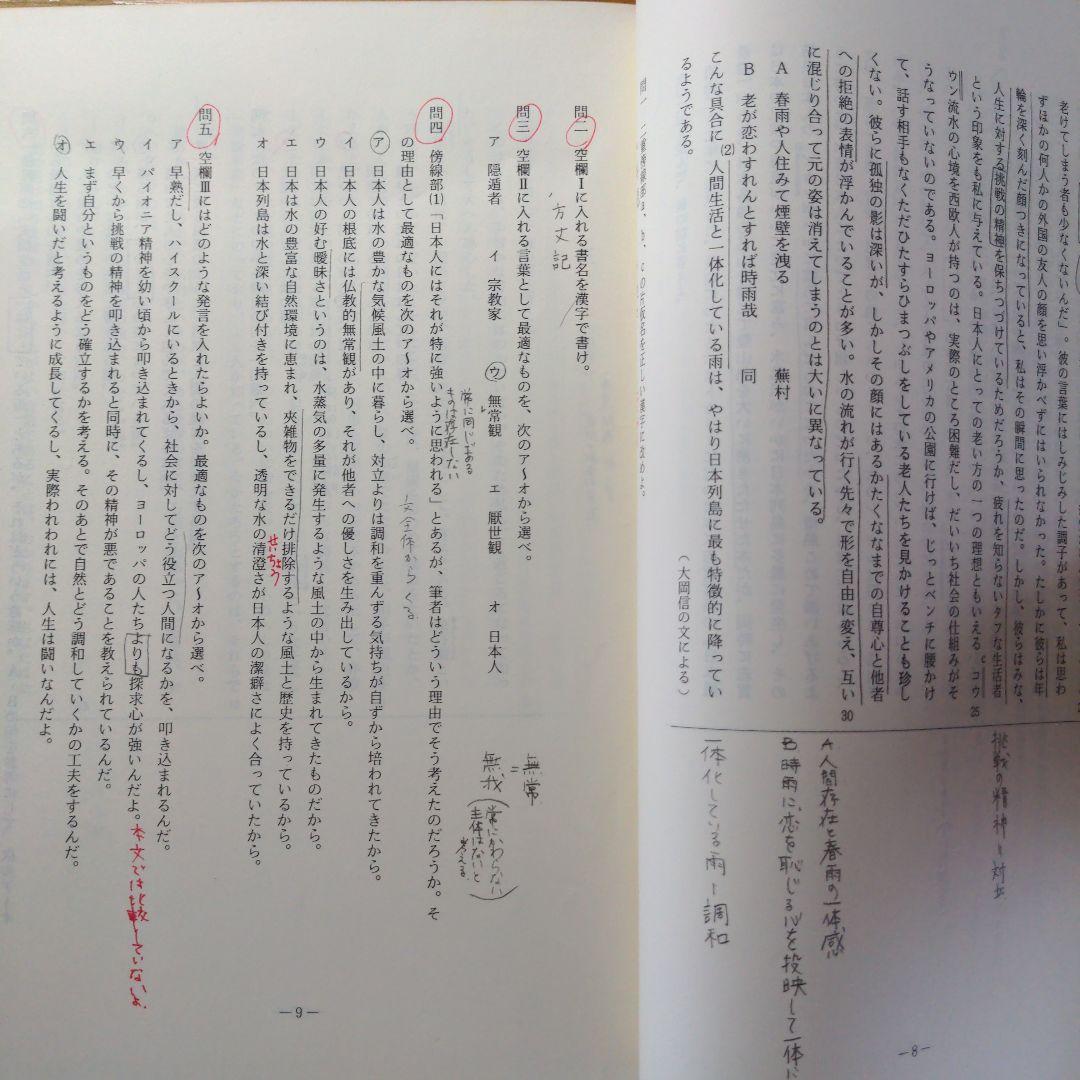 老けてしまう者も少なくないんだ」。彼の言葉にはしみじみした調子があって、私は思わ
ずほかの何人かの外国の友人の顔を思い浮かべずにはいられなかった。たしかに彼らは年
輪を深く刻んだ顔つきになっていると、私はその瞬間に思ったのだ。しかし、彼らはみな、
人生に対する挑戦の精神を保ちつづけているためだろうか、疲れを知らないタフな生活者
という印象をも私に与えている。日本人にとっての老い方の一つの理想ともいえる コウ
25
ウン流水の心境を西欧人が持つのは、実際のところ困難だし、だいいち社会の仕組みがそ
うなっていないのである。ヨーロッパやアメリカの公園に行けば、じっとベンチに腰かけ
て、話す相手もなくただひたすらひまつぶしをしている老人たちを見かけることも珍し
くない。彼らに孤独の影は深いが、しかしその顔にはあるかたくななまでの自尊心と他者
への拒絶の表情が浮かんでいることが多い。水の流れが行く先々で形を自由に変え、互い
30
に混じり合って元の姿は消えてしまうのとは大いに異なっている。
A 春雨や人住みて煙壁を洩る 蕪村
B 老が恋わすれんとすれば時雨哉 同
こんな具合に (2)人間生活と一体化している雨は、やはり日本列島に最も特徴的に降ってい
るようである。
(大岡信の文による)
挑戦の精神
対立
A 人間存在と春雨の一体感
B 時雨に、恋を恥じる心を投映して一体に
一体化している雨
調和
―8―
問二 空欄Ⅰに入れる書名を漢字で書け。
方丈記
問三 空欄Ⅱに入れる言葉として最適なものを、次のア~オから選べ。
ア 隠遁者 イ 宗教家 ウ 無常観 エ 厭世観 オ 日本人
常に同じである
ものは存在しない
無常
=
無我
(常にかわらない
主体はないと
考える)
問四 傍線部(1)「日本人にはそれが特に強いように思われる」とあるが、筆者はどういう理由でそう考えたのだろうか。そ
の理由として最適なものを次のア~オから選べ。
文全体からくる。
ア 日本人は水の豊かな気候風土の中に暮らし、対立よりは調和を重んずる気持ちが自ずから培われてきたから。
イ 日本人の根底には仏教的無常観があり、それが他者への優しさを生み出しているから。
ウ 日本人の好む曖昧さというのは、水蒸気の多量に発生するような風土の中から生まれてきたものだから。
エ 日本人は水の豊富な自然環境に恵まれ、夾雑物をできるだけ排除するような風土と歴史を持っているから。
せいちょう
オ 日本列島は水と深い結び付きを持っているし、透明な水の清澄さが日本人の潔癖さによく合っていたから。
問五 空欄Ⅲにはどのような発言を入れたらよいか。最適なものを次のア~オから選べ。
ア 早熟だし、ハイスクールにいるときから、社会に対してどう役立つ人間になるかを、叩き込まれるんだ。
イ パイオニア精神を幼い頃から叩き込まれてくるし、ヨーロッパの人たちよりも探求心が強いんだよ。
本文では比較していないよ。
ウ 早くから挑戦の精神を叩き込まれると同時に、その精神が悪であることを教えられているんだ。
エ まず自分というものをどう確立するかを考える。そのあとで自然とどう調和していくかの工夫をするんだ。
オ 人生を闘いだと考えるように成長してくるし、実際われわれには、人生は闘いなんだよ。
―9―